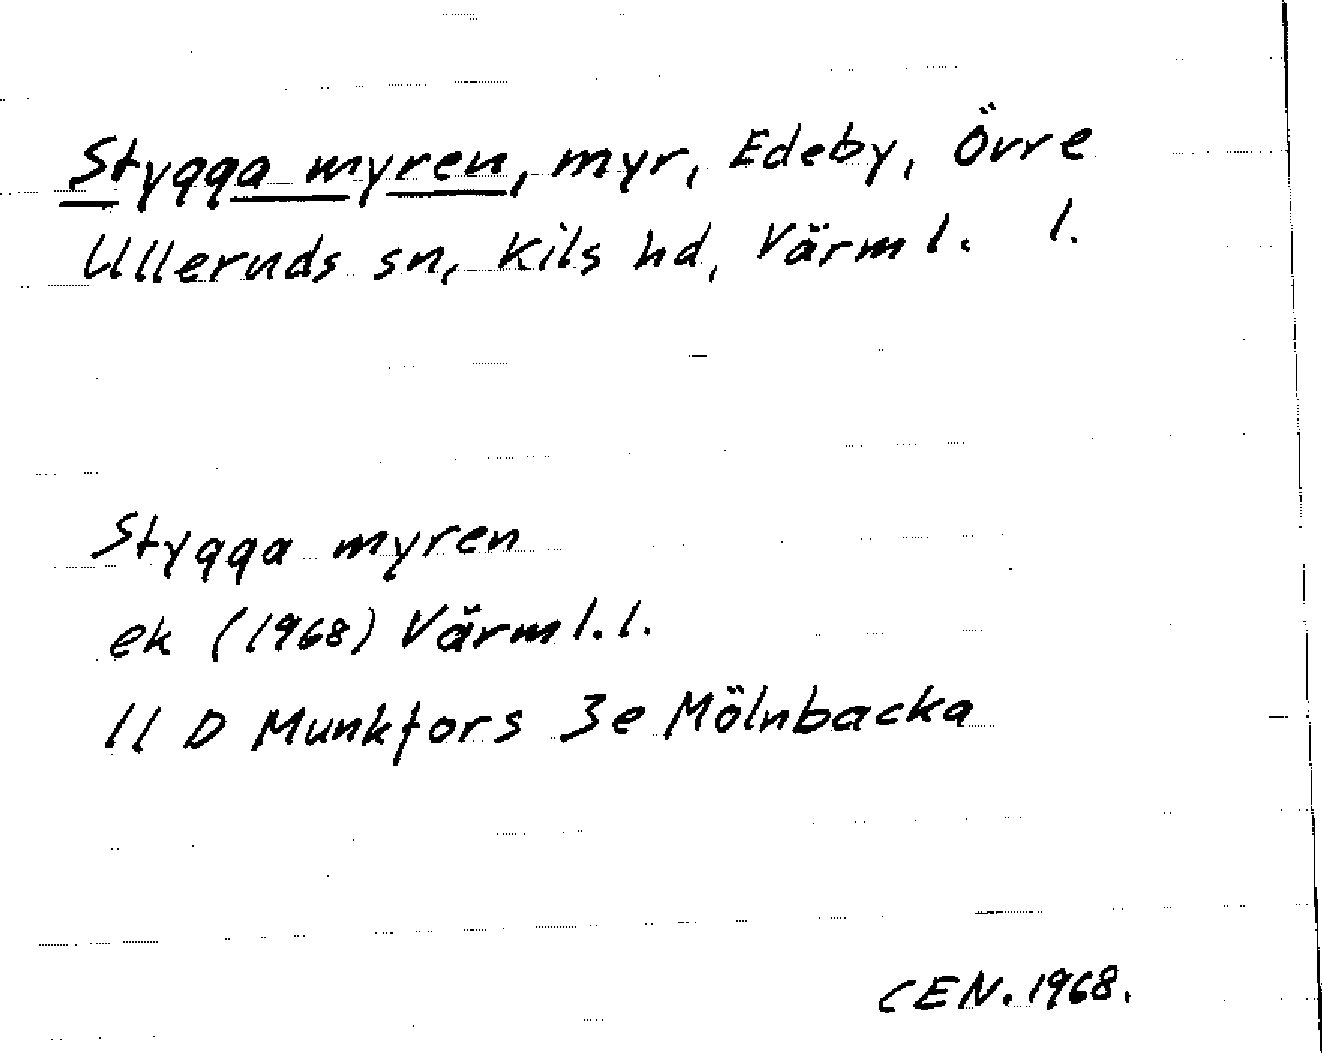 Stygga myren, myr, Edeby, Övre
Ulleruds sn, Kils hd, Värml. l.
Stygga myren
ek (1968) Värml. l.
11 D Munkfors 3e Mölnbacka
CEN. 1968.